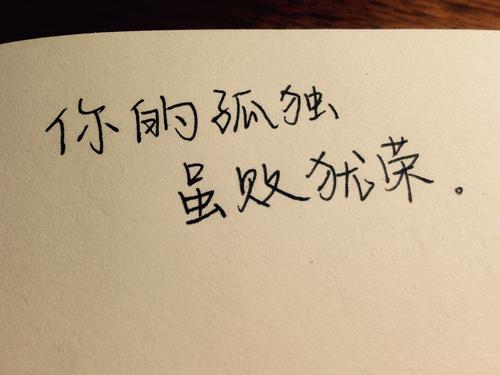 你的孤独
虽败犹荣。